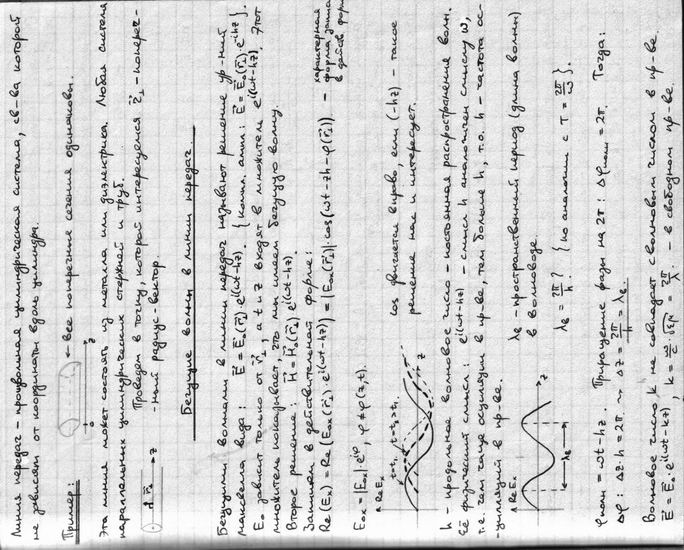 Линия передач – произвольная цилиндрическая система, св-ва которой
не зависят от координаты вдоль цилиндра.
Пример: ← все поперечные сечения одинаковы.
0 z
Эта линия может состоять из металла или диэлектрика. Любая система
параллельных цилиндрических стержней и труб.
Проведем в точку, которой интересуемся r⃗⊥ – попереч-
-ный радиус-вектор
r⃗⊥ → z
Бегущие волны в линии передач.
Бегущими волнами в линии передач называют решение ур-ний
максвелла вида: E⃗ = E⃗₀(r⃗⊥)·e^{i(ωt-hz)}. { компл. ампл: E⃗ = E⃗₀(r⃗⊥) e^{-ihz} }.
E₀ зависит только от r⃗⊥, а t и z входят в множитель e^{i(ωt-hz)}. Этот
множитель показывает, что мы имеем бегущую волну.
Второе решение: H⃗ = H⃗₀(r⃗⊥) e^{i(ωt-hz)}
Запишем в действительной форме:
Re(Eₓ) = Re(E₀ₓ(r⃗⊥) e^{i(ωt-hz)}) = |E₀ₓ(r⃗⊥)|·cos(ωt-zh-φ(r⃗⊥)) – характерная
форма записи
в действ. форме
E₀ₓ = |E₀ₓ|·e^{iφ}, φ ≠ φ(z,t).
Re Eₓ t=t₁ t=t₂>t₁ z
cos двигается вправо, если (-hz) – такое
решение нас и интересует.
h – продольное волновое число – постоянная распространения волн.
Её физический смысл: e^{i(ωt-hz)} – смысл h аналогичен смыслу ω,
т.е. чем чаще осцилляции в пр-ве, тем больше h, т.о. h – частота ос-
-цилляций в пр-ве.
Re Eₓ z λ_в
λ_в – пространственный период (длина волны)
в волноводе.
λ_в = 2π/h? { по аналогии с T = 2π/ω }.
φ_полн = ωt-hz. Приращение фазы на 2π: Δφ_полн = 2π. Тогда:
Δφ: Δz·h = 2π ↝ Δz = 2π/h = λ_в.
Волновое число k не совпадает с волновым числом в пр-ве
E⃗ = E⃗₀·e^{i(ωt-kz)}, k = ω/c·√εμ = 2π/λ. – в свободном пр-ве.